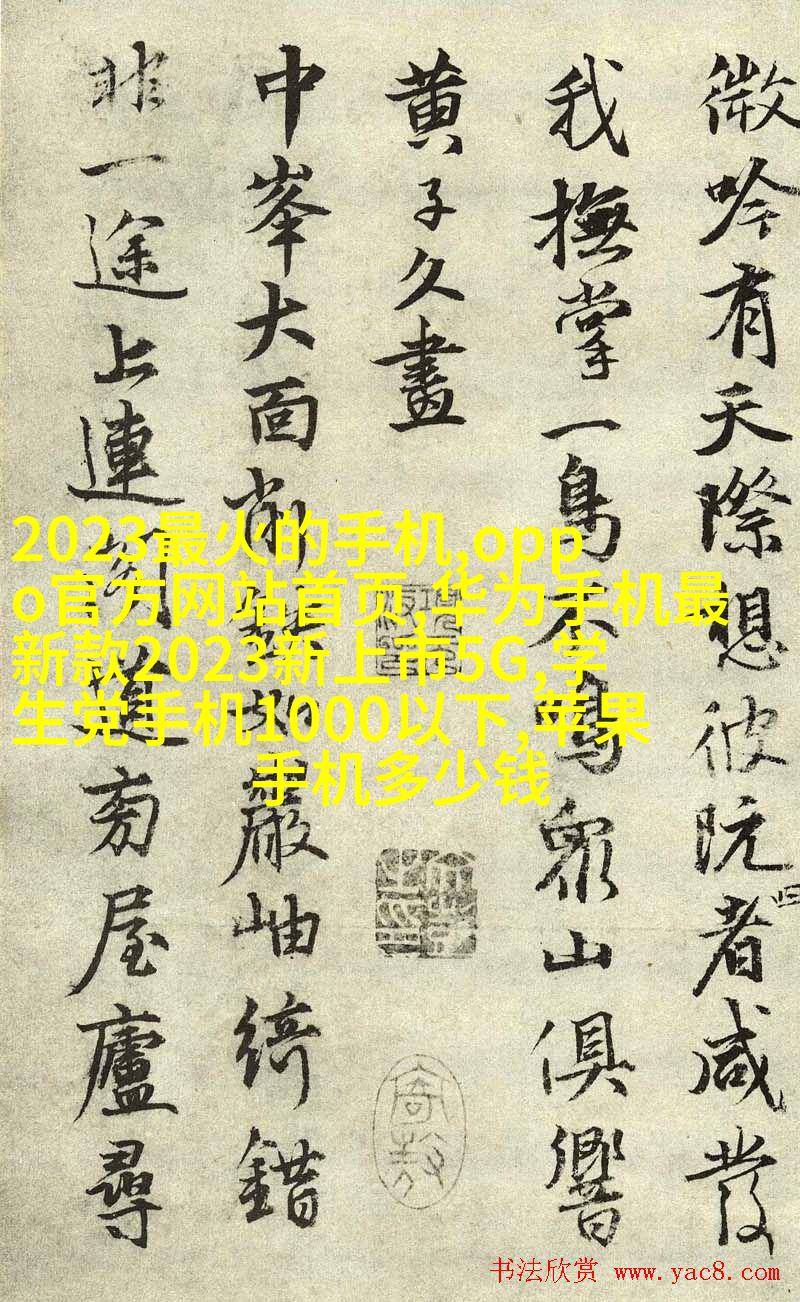 微吟有天際想彼阮者咸發
我撫掌一鳥不鳴衆山俱響
黃子久畫
中峯大面削如巖岫綺錯
非一途上連屋廬尋
2023最火的手机,opp
o官方网站首页,华为手机最
新款2023新上市5G,学
生党手机1000以下,苹果
手机多少钱
书法欣赏 www.yac8.com